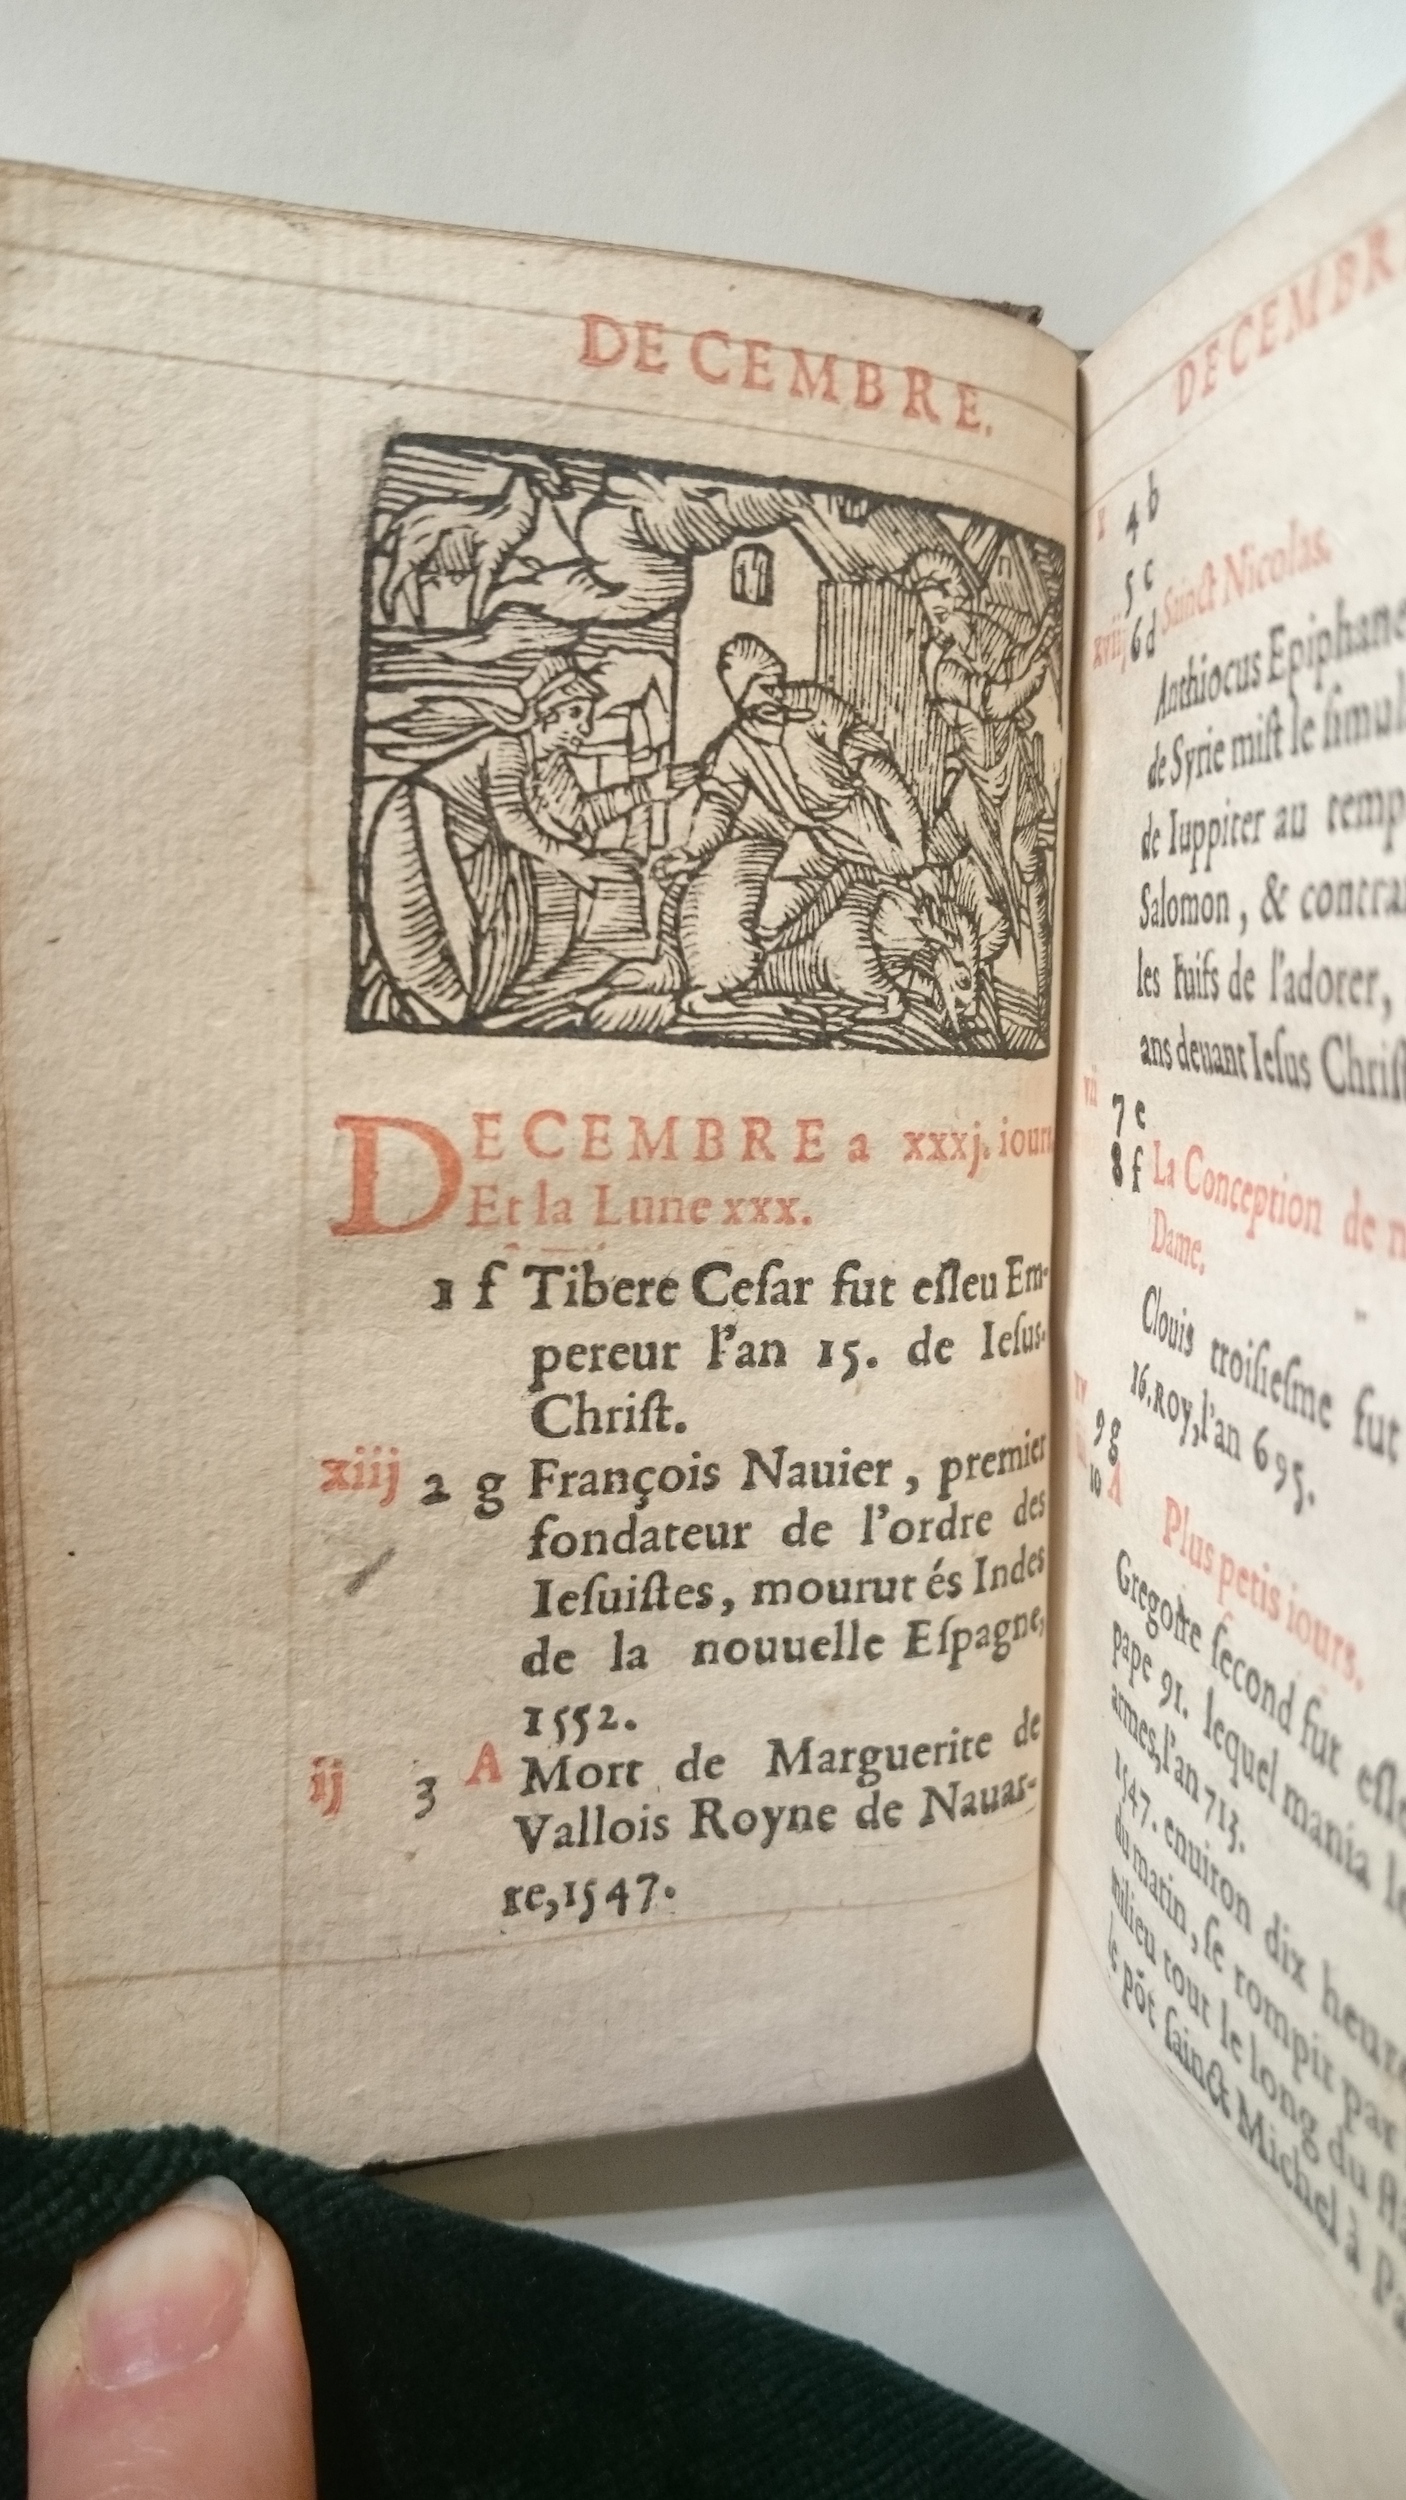 DECEMBRE.
DECEMBRE a xxxj. iours
Et la Lune xxx.
1 f Tibere Ceſar fut eſleu Em-
pereur l'an 15. de Ieſus-
Chriſt.
xiij 2 g François Nauier, premier
fondateur de l'ordre des
Ieſuiſtes, mourut és Indes
de la nouuelle Eſpagne,
1552.
ij 3 A Mort de Marguerite de
Vallois Royne de Nauar-
re, 1547.
DECEMBR
x 4 b
5 c
xviij 6 d Sainct Nicolas.
Anthiocus Epiphane
de Syrie miſt le ſimul
de Iuppiter au temp
Salomon, & contra
les Iuifs de l'adorer,
ans deuant Ieſus Chriſt
vij 7 e
8 f La Conception de n
Dame.
Clouis troiſieſme fut
16. Roy, l'an 695.
xv 9 g
10 A
Plus petis iours.
Gregoire ſecond fut eſle
pape 91. lequel mania le
armes, l'an 713.
1547. enuiron dix heure
du matin, ſe rompit par
milieu tout le long du
le põt ſainct Michel à Pa